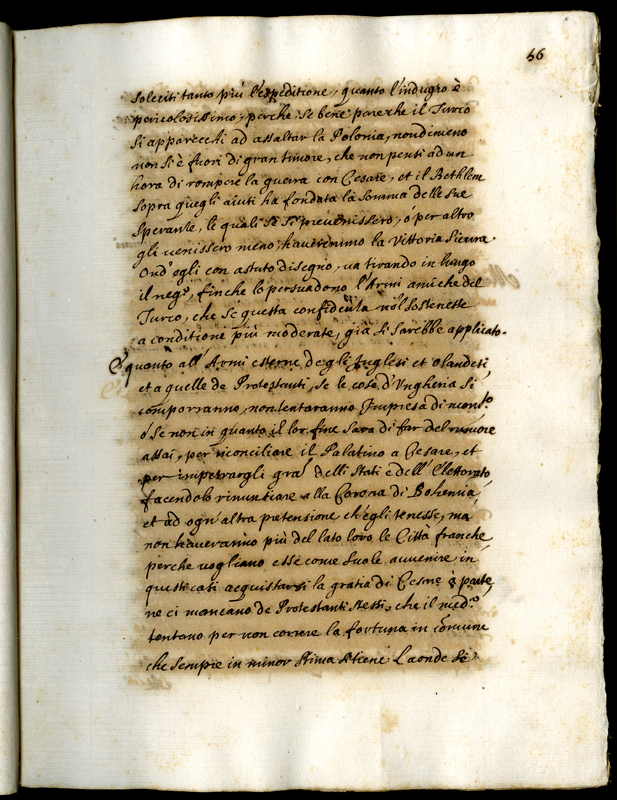 56
soleciti tanto più l'espeditione, quanto l'indugio è
pericolosissimo; perche, se bene pare che il Turco
si apparecchi ad assaltar la Polonia, nondimeno
non si è fuori di gran timore, che non pensi ad un
hora di romper la guerra con Cesare, et il Bethlem
sopra quegli aiuti ha fondata la somma delle sue
speranze, le quali se si prevenissero, ò per altro
gli venissero meno, haveremmo la Vittoria sicura
Ond' egli con astuto disegno, va tirando in lungo
il neg.º, finche lo persuadono l'Armi amiche del
Turco, che se questa confidēza nōl sostenesse
a conditione più moderate, già si sarebbe applicato.
E quanto all' Armi esterne degli Inglesi et Olandesi,
et a quelle de Protestanti, se le cose d'Ungheria si
comporranno, non tentaranno Impresa di mom.to
ò se non in quanto il lor fine sara di far del rumore
assai, per riconciliare il Palatino a Cesare, et
per impetrargli gra' delli Stati e dell' Elettorato
facendolo rinuntiare alla Corona di Bohemia,
et ad ogn' altra pretensione ch'egli tenesse, ma
non haveranno più del lato loro le Città franche
perche vogliano esse come suole avvenire in
questi casi acquistarsi la gratia di Cesare à parte,
ne ci mancano de Protestanti stessi, che il med.º
tentano per non correre la fortuna in comune
che sempre in minor stima si tiene Laonde se